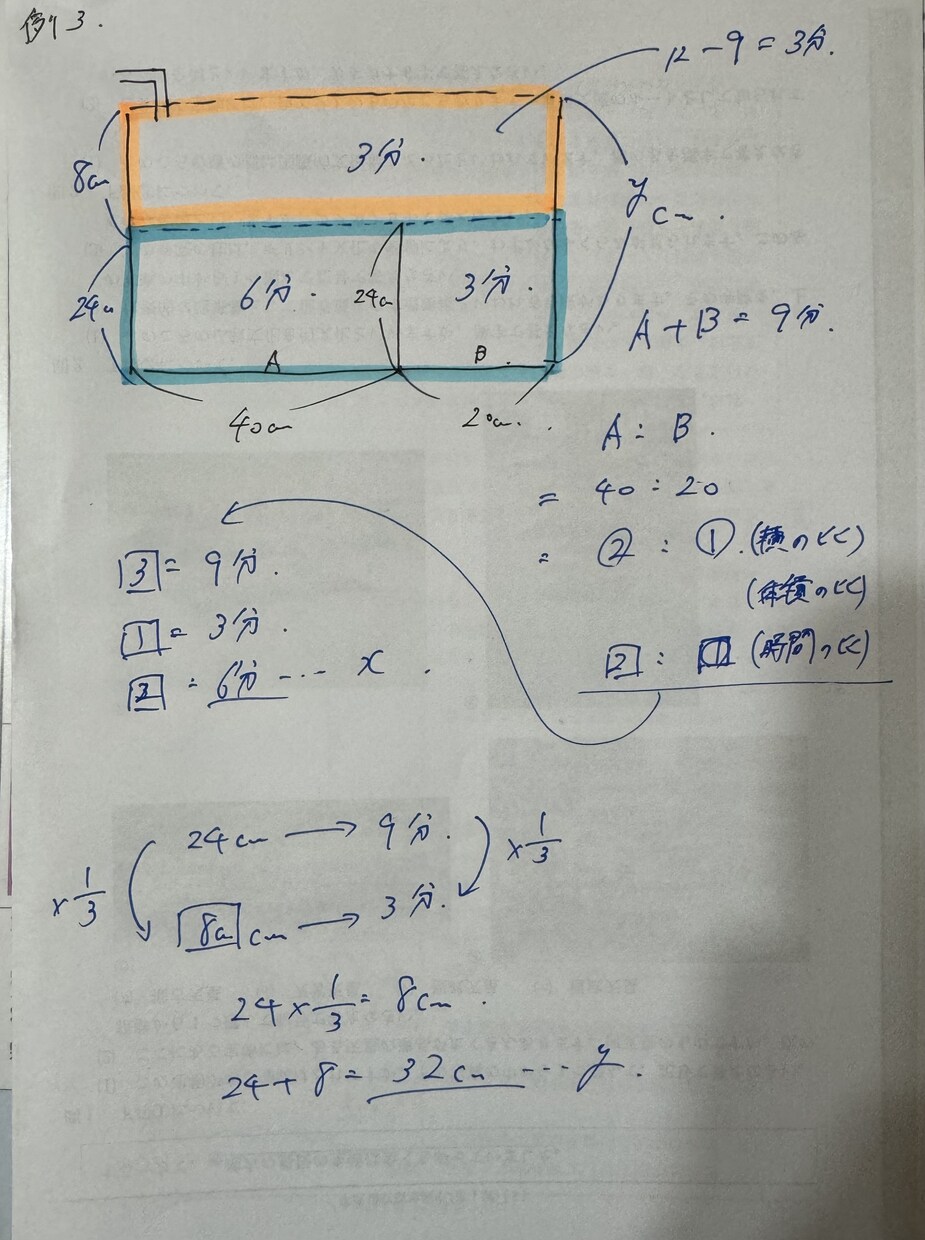 例3.
12-9=3分.
8cm
3分.
ycm.
24cm
6分.
24cm
3分.
A+B=9分.
A
B.
40cm
20cm.
A:B.
=40:20
=②:①.(横の比)
(体積の比)
2:1(時間の比)
3=9分.
1=3分.
2=6分…x.
24cm→9分.
×1/3
×1/3
8cm cm→3分.
24×1/3=8cm.
24+8=32cm y.